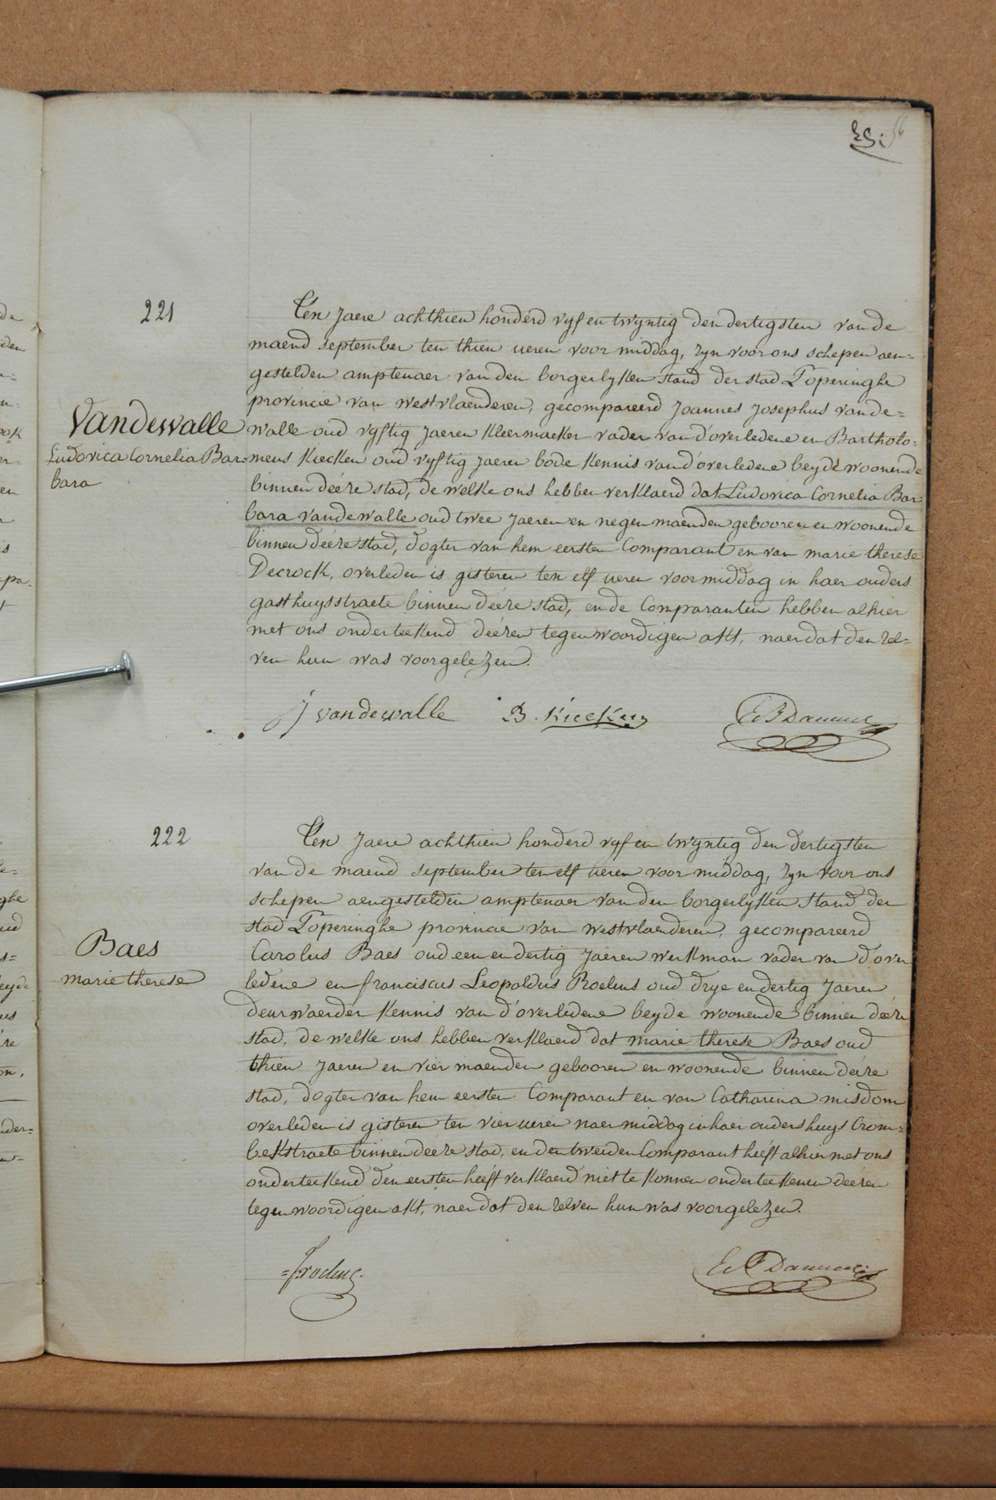 221
Vandewalle
Ludovica Cornelia Bar=
bara
Ten Jaere achthien honderd vyf en twyntig den dertigsten van de
maend september ten thien ueren voor middag, zyn voor ons schepen aen=
gestelden amptenaer van den borgerlyken stand der stad Poperinghe
provincie van westvlaenderen, gecompareerd Joannes Josephus vande=
walle oud vyftig Jaeren kleermaeker vader van d'overledene en Bartholo=
meus Kiecken oud vyftig Jaeren bode kennis van d'overledene beyde woonende
binnen deeze stad, de welke ons hebben verklaerd dat Ludovica Cornelia Bar
bara vandewalle oud twee Jaeren en negen maenden gebooren en woonende
binnen deéze stad, dogter van hem eersten Comparant en van marie therese
Decrock, overleden is gisteren ten elf ueren voormiddag in haer ouders
gasthuysstraete binnen deéze stad, en de Comparanten hebben alhier
met ons onderteekend deézen tegenwoordigen akt, naer dat den zel=
ven hun was voorgelezen.
J vandewalle B. Kiecken
222
Baes
marie therese
Ten Jaere achthien honderd vyf en twyntig den dertigsten
van de maend september ten elf ueren voor middag, zyn voor ons
schepen aengestelden amptenaer van den borgerlyken stand der
stad Poperinghe provincie van westvlaenderen, gecompareerd
Carolus Baes oud een en dertig Jaeren werkman vader van d'over
ledene en franciscus Leopoldus Roelens oud drye en dertig Jaeren
deurwaerder kennis van d'overledene beyde woonende binnen deéze
stad, de welke ons hebben verklaerd dat marie therese Baes oud
thien Jaeren en vier maenden gebooren en woonende binnen deéze
stad, dogter van hem eersten Comparant en van Catharina misdom
overleden is gisteren ten vier ueren naer middag in haer ouders huys Crom=
bekstraete binnen deéze stad, en den tweeden Comparant heéft alhier met ons
onderteekend den eersten heéft verklaerd niet te konnen onderteekenen deézen
tegenwoordigen akt, naer dat den zelven hun was voorgelezen.